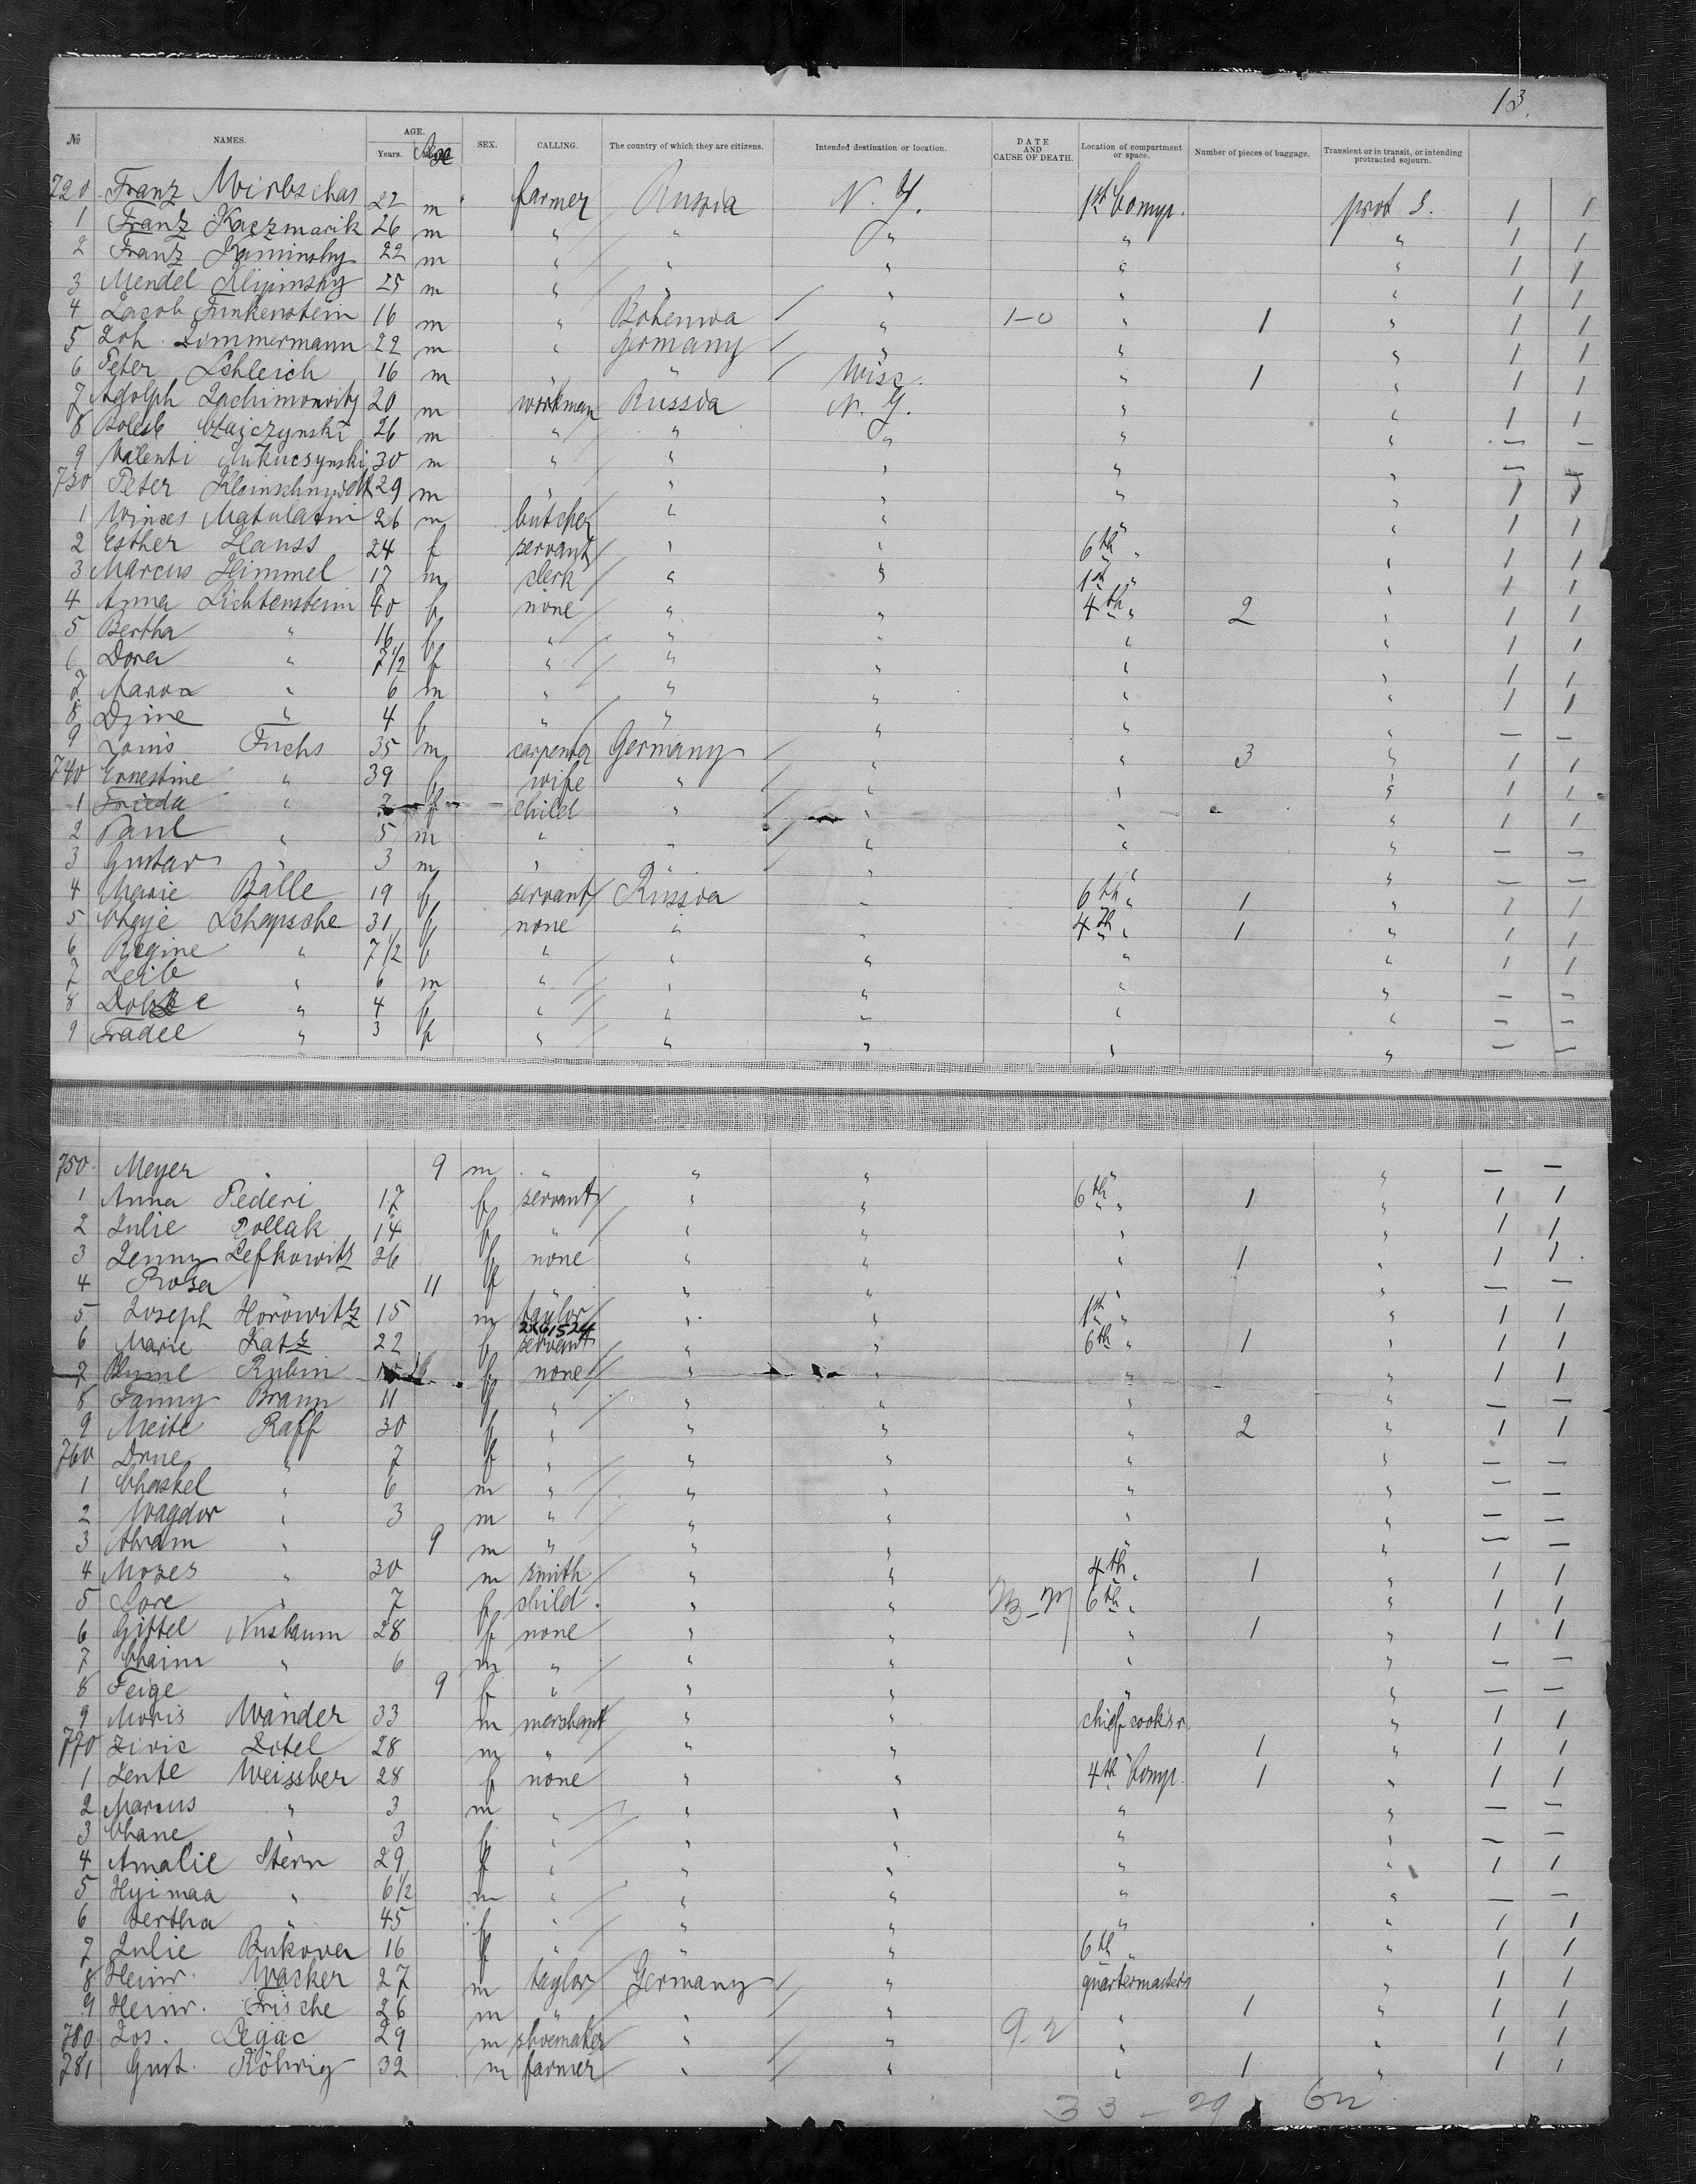 13.
№ NAMES. AGE. Years. SEX. CALLING. The country of which they are citizens. Intended destination or location. DATE AND CAUSE OF DEATH. Location of compartment or space. Number of pieces of baggage. Transient or in transit, or intending protracted sojourn.
720 Franz 22 m farmer Russia N. Y. 1st Comp. prot S. 1 1
1 Franz Kaczmarik 26 m " " " " " 1 1
2 Franz Kaminsky 22 m " " " " " 1 1
3 Mendel Klipinsky 25 m " " " " " 1 1
4 Jacob Funkenstein 16 m " Bohemia " 1-0 " 1 " 1 1
5 Joh. Zimmermann 22 m " Germany " " " 1 1
6 Peter Schleich 16 m " " Wisc. " 1 " 1 1
7 Adolph Jachimowitz 20 m workman Russia N. Y. " " 1 1
8 Bolesl 26 m " " " " " — —
9 Valenti 30 m " " " " " — —
730 Peter Kleinschmidt 29 m " " " " " 1 1
1 Winzes Matulatin 26 m butcher " " " " 1 1
2 Esther Hauss 24 f servant " " 6th " " 1 1
3 Marcus Himmel 17 m clerk " " 1st " " 1 1
4 Anna Lichtenstein 40 f none " " 4th " 2 " 1 1
5 Bertha " 16 f " " " " " 1 1
6 Dora " 7 1/2 f " " " " " 1 1
7 " 6 m " " " " " 1 1
8 Dzine " 4 f " " " " " — —
9 Louis Fuchs 35 m carpenter Germany " " 3 " 1 1
740 Ernestine " 39 f wife " " " " 1 1
1 Frieda " 7 f child " " " 1 1
2 Paul " 5 m " " " " " — —
3 Gustav 3 m " " " " — —
4 Marie Bälle 19 f servant Russia " 6th " 1 " 1 1
5 Chaje Schapsche 31 f none " " 4th " 1 " 1 1
6 Regine " 7 1/2 f " " " " " 1 1
7 Leib " 6 m " " " " " — —
8 " 4 f " " " " " — —
9 Fradel " 3 f " " " " " — —
750 Meyer " 9 m " " " " — —
1 Anna Pederi 17 f servant " " 6th " 1 " 1 1
2 Julie Pollak 14 f " " " " " 1 1
3 Jenny Lefkowitz 26 f none " " " 1 " 1 1
4 Rosa 11 f " " " " " — —
5 Joseph Horowitz 15 m taylor " " 1st " " 1 1
2X61524
6 Marie Katz 22 f servant " " 6th " 1 " 1 1
7 Rubin f none " " " " 1 1
8 Fanny Braun 11 f " " " " " — —
9 Meite Raff 30 f " " " " 2 " 1 1
760 Drue " 7 f " " " " " — —
1 Chaskel " 6 m " " " " " — —
2 Wagdor " 3 m " " " " " — —
3 Abram " 9 m " " " " " — —
4 Mozes " 30 m smith " " 4th " 1 " 1 1
5 Lore " 7 f child. " " 6th " " 1 1
6 Gittel Nusbaum 28 f none " " " 1 " 1 1
7 Chaim " 6 m " " " " " — —
8 Feige " 9 f " " " " " — —
9 Moris Wander 33 m merchant " " chief cook's r. " 1 1
770 Zivie Zotel 28 m " " " 1 " 1 1
1 Zente Weissber 28 f none " " 4th Comp. 1 " 1 1
2 Marcus " 3 m " " " " " — —
3 Chane " 3 f " " " " " — —
4 Amalie Stern 29 f " " " " " 1 1
5 Hyimaa " 6 1/2 m " " " " " — —
6 Bertha " 45 f " " " " " 1 1
7 Julie Bukover 16 f " " " 6th " " 1 1
8 Heinr. Wasker 27 m taylor Germany " quartermasters " 1 1
9 Heinr. Frische 26 m " " " " 1 " 1 1
780 Jos. Legac 29 m shoemaker " " 9-2 " " 1 1
781 Gust. Röhrig 32 m farmer " " " 1 " 1 1
33 - 29 62